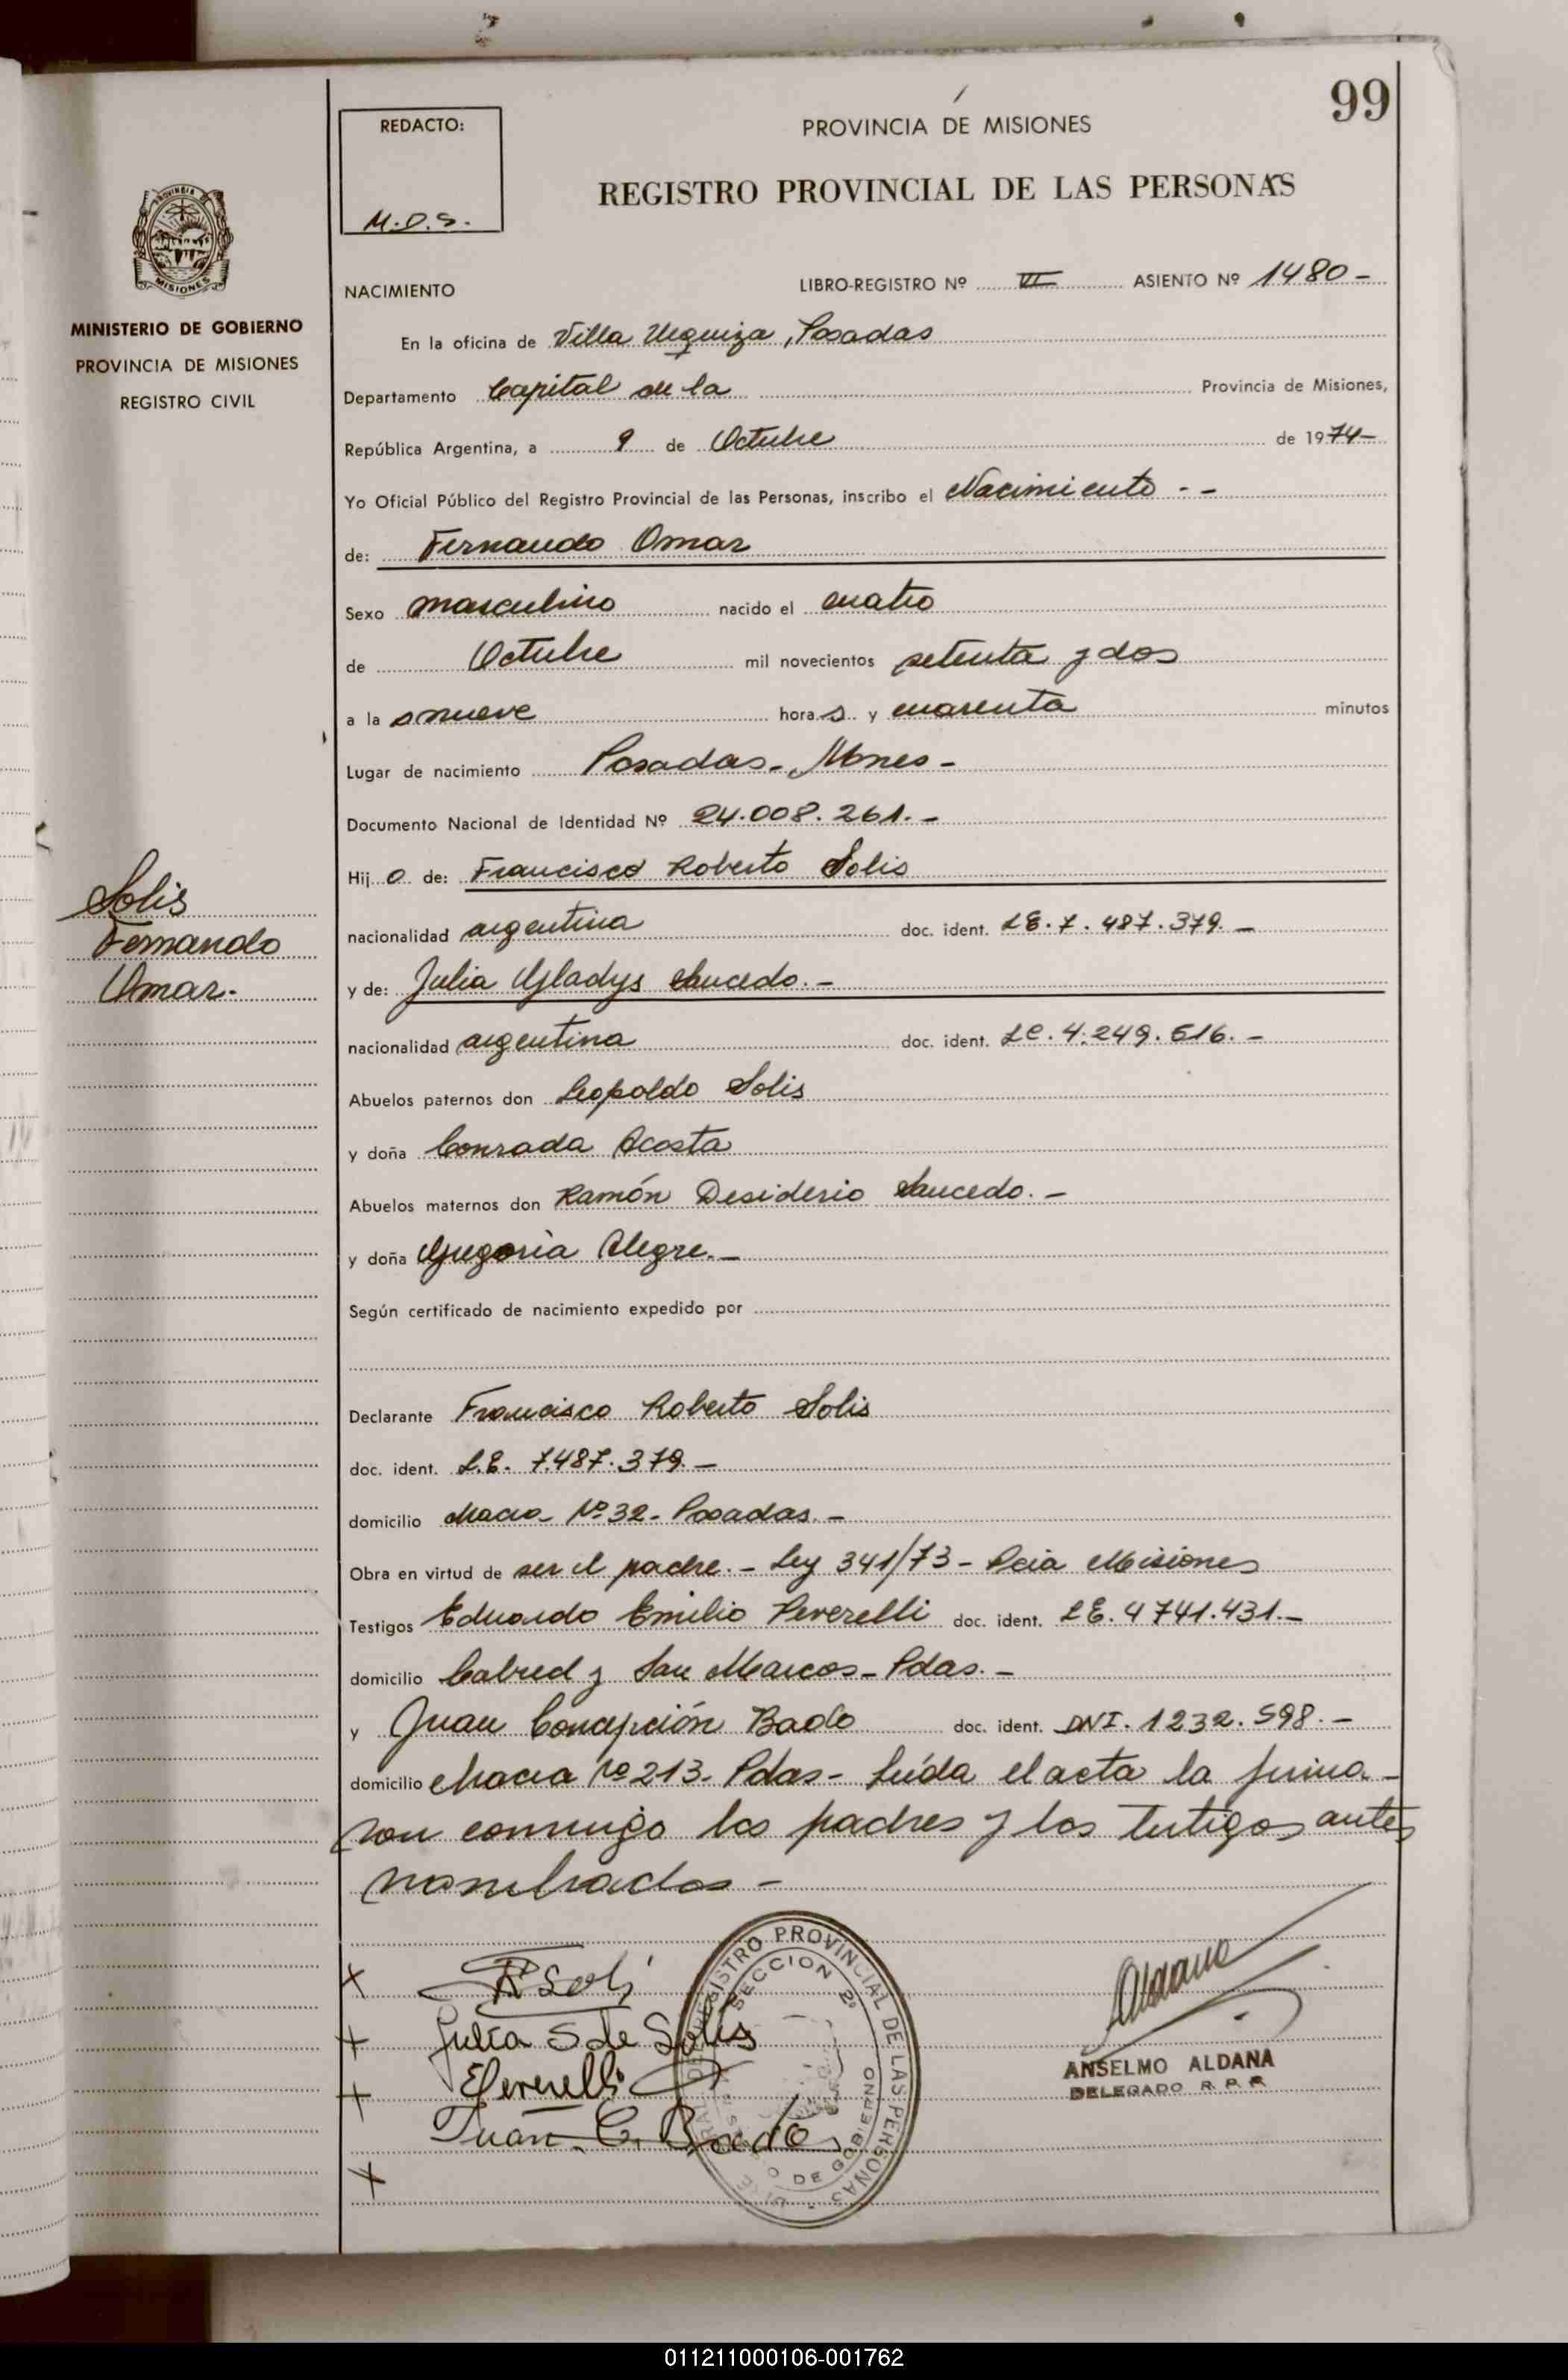 99
REDACTO:
M.D.S.
PROVINCIA DE MISIONES
REGISTRO PROVINCIAL DE LAS PERSONAS
MISIONES
MINISTERIO DE GOBIERNO
PROVINCIA DE MISIONES
REGISTRO CIVIL
NACIMIENTO LIBRO-REGISTRO Nº VI ASIENTO Nº 1480-
En la oficina de Villa Urquiza, Posadas
Departamento Capital de la Provincia de Misiones,
República Argentina, a 9 de Octubre de 1974-
Yo Oficial Público del Registro Provincial de las Personas, inscribo el Nacimiento - -
de: Fernando Omar
Sexo masculino nacido el cuatro
de Octubre mil novecientos setenta y dos
a la s nueve hora s y cuarenta minutos
Lugar de nacimiento Posadas- Mnes-
Documento Nacional de Identidad Nº 24.008.261.-
Hij o de: Francisco Roberto Solis
Solis
Fernando
Omar.
nacionalidad argentina doc. ident. LE.7.487.379.-
y de: Julia Gladys Saucedo.-
nacionalidad argentina doc. ident. LC.4.249.616.-
Abuelos paternos don Leopoldo Solis
y doña Conrada Acosta
Abuelos maternos don Ramón Desiderio Saucedo.-
y doña Gregoria Alegre.-
Según certificado de nacimiento expedido por
Declarante Francisco Roberto Solis
doc. ident. L.E. 7.487.379.-
domicilio Chacra Nº 32- Posadas.-
Obra en virtud de ser el padre.- Ley 341/73- Pcia Misiones
Testigos Eduardo Emilio Peverelli doc. ident. LE.4741.431.-
domicilio Cabred y San Marcos-Pdas.-
y Juan Concepción Bado doc. ident. DNI.1232.598.-
domicilio Chacra Nº 213- Pdas- Leída el acta la firma-
ron conmigo los padres y los testigos antes
nombrados-
R Solis
Julia S de Solis
EPeverelli
Juan. C. Bado
REGISTRO PROVINCIAL DE LAS PERSONAS
SECCION 2º
O DE GOBIERNO
Aldana
ANSELMO ALDANA
DELEGADO R. P. P.
011211000106-001762